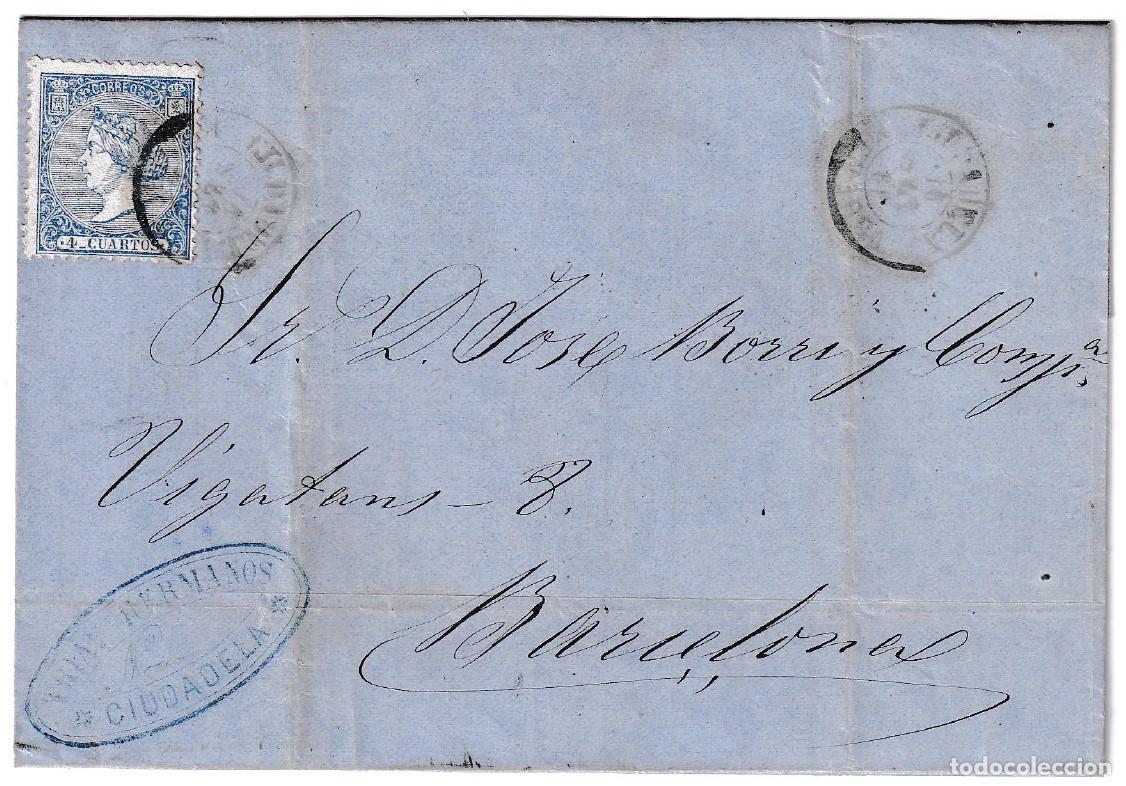 CORREOS
4 CUARTOS
Sr. D. José Borri y Compª
Vigatans 8.
Barcelona
HERMANOS
CIUDADELA
todocoleccion